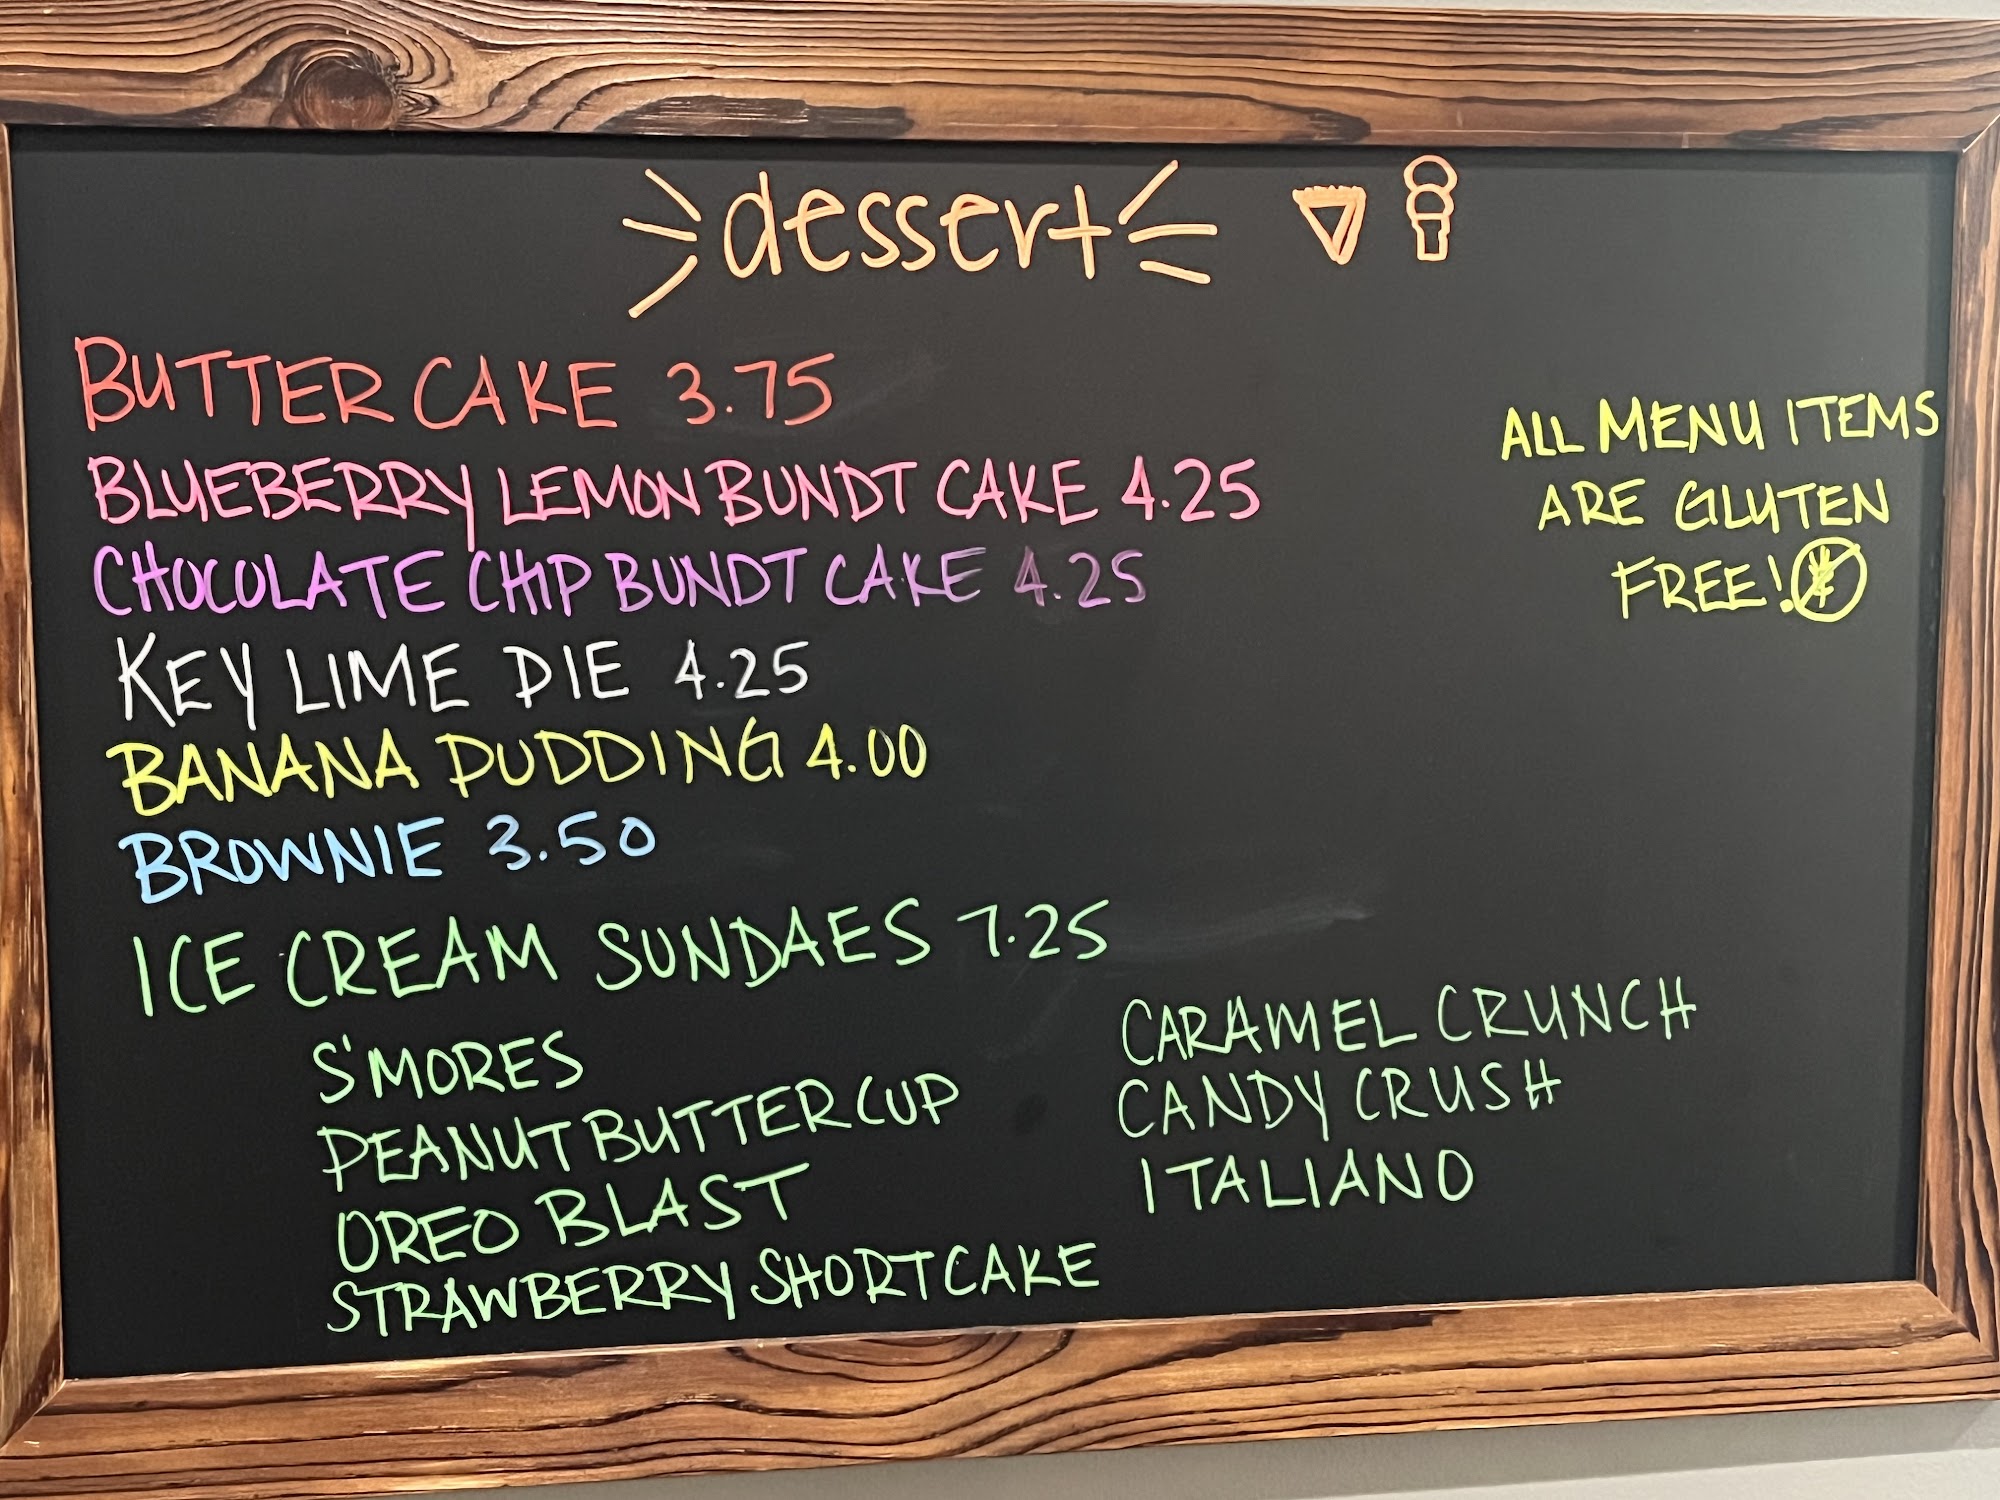 dessert
BUTTER CAKE 3.75
BLUEBERRY LEMON BUNDT CAKE 4.25
CHOCOLATE CHIP BUNDT CAKE 4.25
KEY LIME PIE 4.25
BANANA PUDDING 4.00
BROWNIE 3.50
ALL MENU ITEMS
ARE GLUTEN
FREE!
ICE CREAM SUNDAES 7.25
S'MORES
PEANUT BUTTER CUP
OREO BLAST
STRAWBERRY SHORTCAKE
CARAMEL CRUNCH
CANDY CRUSH
ITALIANO